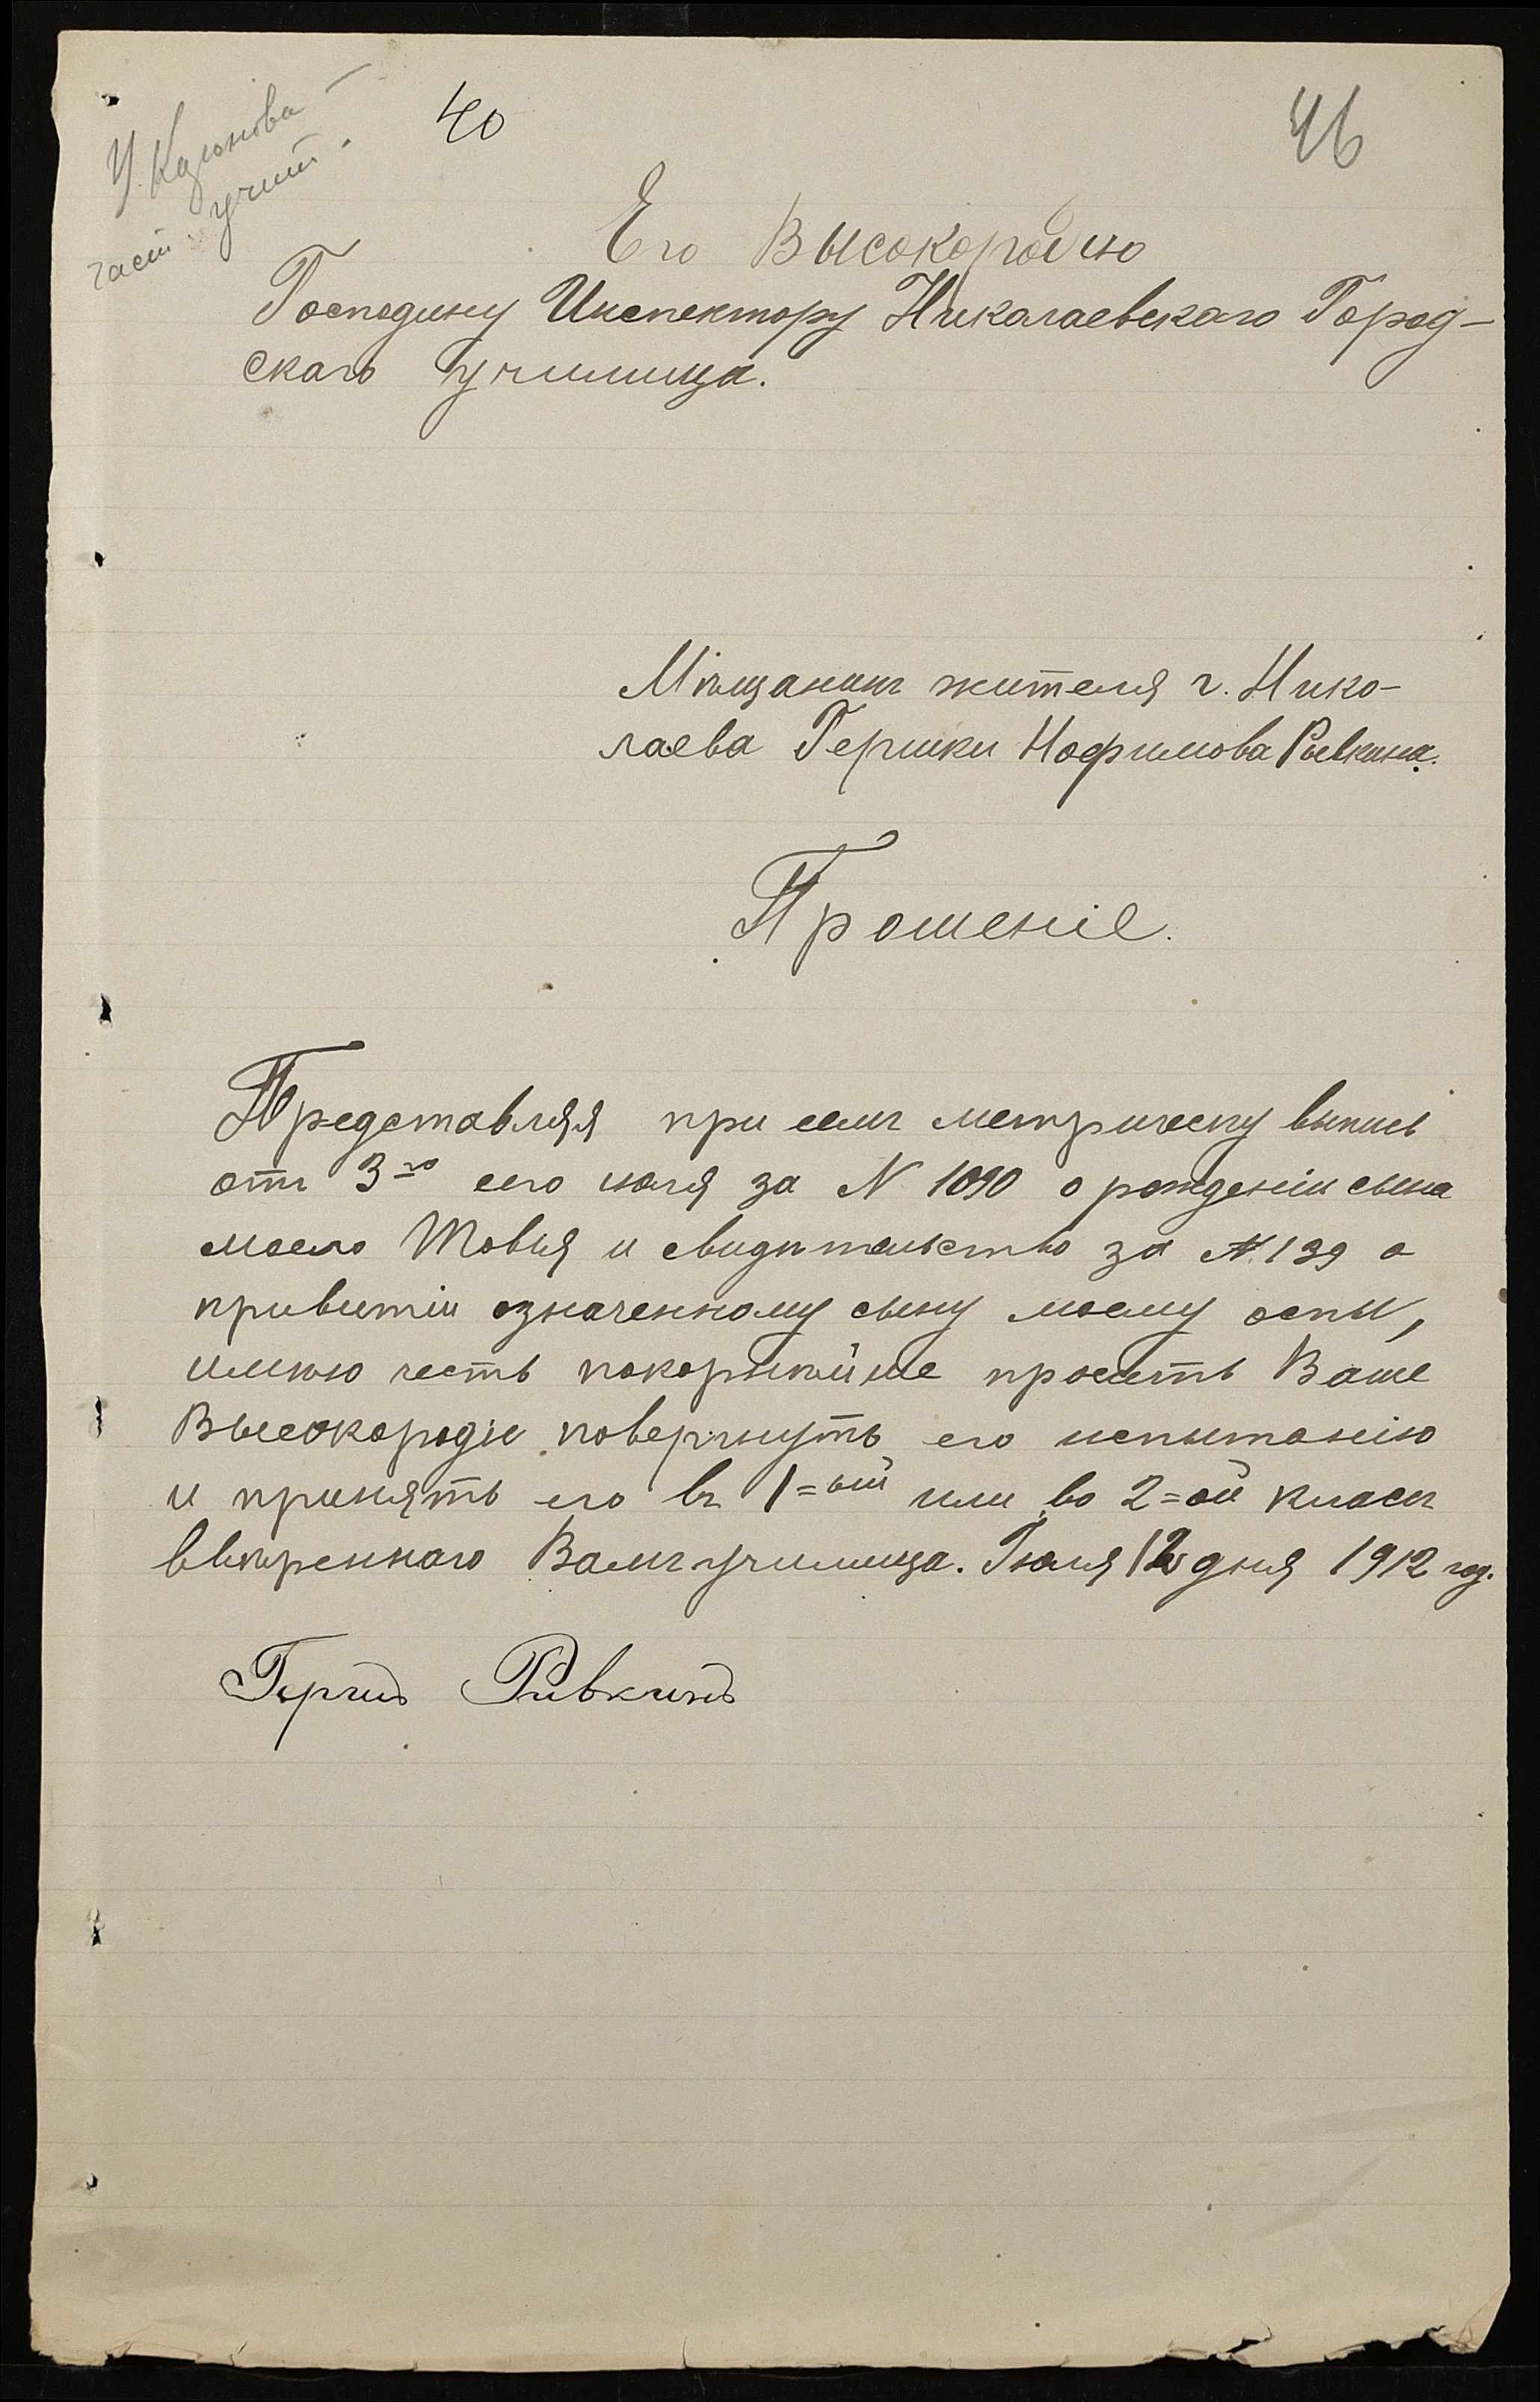 40
46
У Казюкова
учит.
Его Высокородию
Господину Инспектору Николаевскаго Город-
скаго училища.
Мѣщанинъ жителя г. Нико-
лаева Гершки Нофимова Рывкина.
Прошеніе.
Представляя при семъ метрическу выпись
отъ 3-го сего июля за № 1090 о рожденіи сына
моего Товія и свидѣтельство за №. 139 о
привитіи означенному сыну моему оспы,
имѣю честь покорнѣйше просить Ваше
Высокородіе повергнуть его испытанію
и принять его въ 1=ый или во 2=ой класъ
ввѣреннаго Вамъ училища. Іюля 12 дня 1912 год.
Герш Ривкинъ